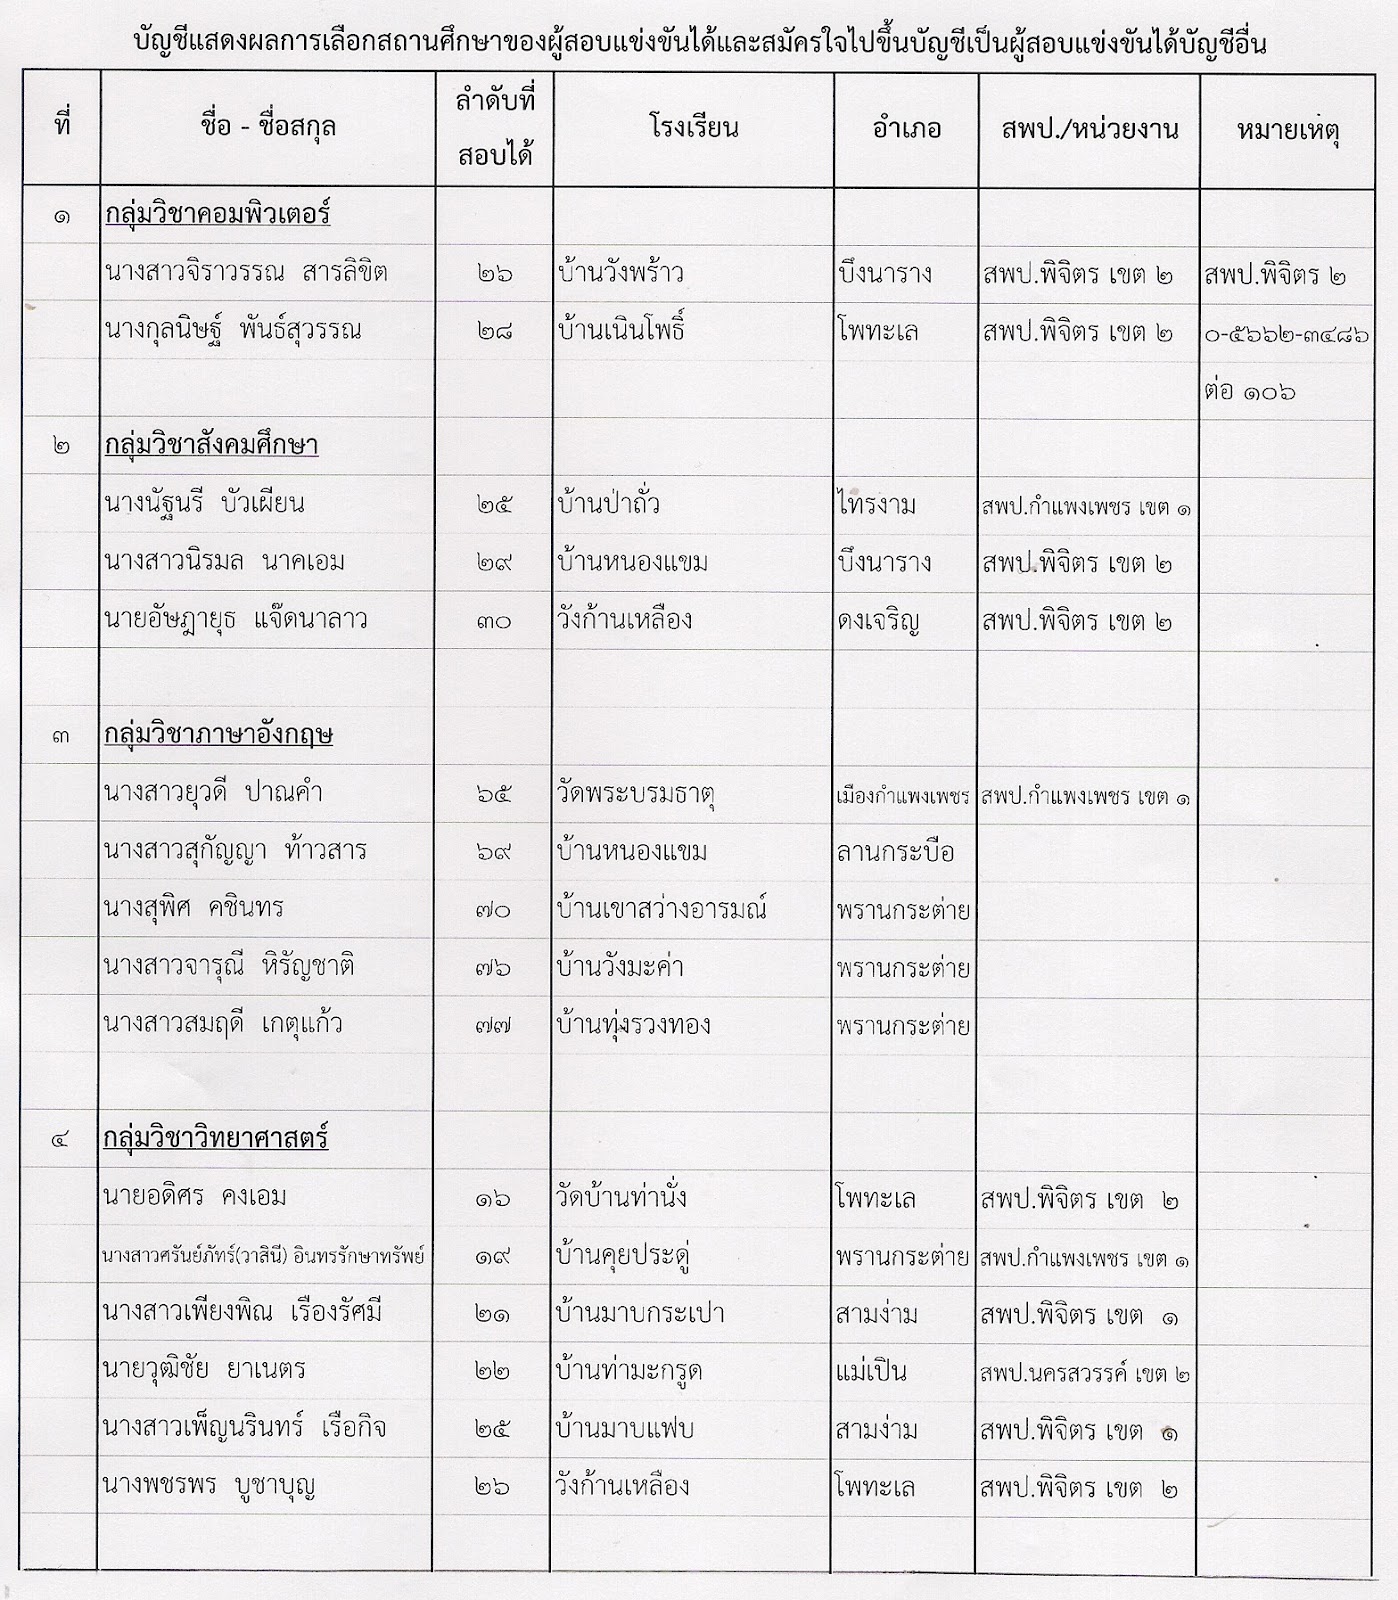 บัญชีแสดงผลการเลือกสถานศึกษาของผู้สอบแข่งขันได้และสมัครใจไปขึ้นบัญชีเป็นผู้สอบแข่งขันได้บัญชีอื่น
ที่ ชื่อ - ชื่อสกุล ลำดับที่สอบได้ โรงเรียน อำเภอ สพป./หน่วยงาน หมายเหตุ
๑ กลุ่มวิชาคอมพิวเตอร์
นางสาวจิราวรรณ สารลิขิต ๒๖ บ้านวังพร้าว บึงนาราง สพป.พิจิตร เขต ๒ สพป.พิจิตร ๒
นางกุลนิษฐ์ พันธ์สุวรรณ ๒๘ บ้านเนินโพธิ์ โพทะเล สพป.พิจิตร เขต ๒ ๐-๕๖๖๒-๓๔๘๖
ต่อ ๑๐๖
๒ กลุ่มวิชาสังคมศึกษา
นางนัฐนรี บัวเผียน ๒๕ บ้านป่าถั่ว ไทรงาม สพป.กำแพงเพชร เขต ๑
นางสาวนิรมล นาคเอม ๒๙ บ้านหนองแขม บึงนาราง สพป.พิจิตร เขต ๒
นายอัษฎายุธ แจ๊ดนาลาว ๓๐ วังก้านเหลือง ดงเจริญ สพป.พิจิตร เขต ๒
๓ กลุ่มวิชาภาษาอังกฤษ
นางสาวยุวดี ปาณคำ ๖๕ วัดพระบรมธาตุ เมืองกำแพงเพชร สพป.กำแพงเพชร เขต ๑
นางสาวสุกัญญา ท้าวสาร ๖๙ บ้านหนองแขม ลานกระบือ
นางสุพิศ คชินทร ๗๐ บ้านเขาสว่างอารมณ์ พรานกระต่าย
นางสาวจารุณี หิรัญชาติ ๗๖ บ้านวังมะค่า พรานกระต่าย
นางสาวสมฤดี เกตุแก้ว ๗๗ บ้านทุ่งรวงทอง พรานกระต่าย
๔ กลุ่มวิชาวิทยาศาสตร์
นายอดิศร คงเอม ๑๖ วัดบ้านท่านั่ง โพทะเล สพป.พิจิตร เขต ๒
นางสาวศรันย์ภัทร์(วาสินี) อินทรรักษาทรัพย์ ๑๙ บ้านคุยประดู่ พรานกระต่าย สพป.กำแพงเพชร เขต ๑
นางสาวเพียงพิณ เรืองรัศมี ๒๑ บ้านมาบกระเปา สามง่าม สพป.พิจิตร เขต ๑
นายวุฒิชัย ยาเนตร ๒๒ บ้านท่ามะกรูด แม่เปิน สพป.นครสวรรค์ เขต ๒
นางสาวเพ็ญนรินทร์ เรือกิจ ๒๕ บ้านมาบแฟบ สามง่าม สพป.พิจิตร เขต ๑
นางพชรพร บูชาบุญ ๒๖ วังก้านเหลือง โพทะเล สพป.พิจิตร เขต ๒